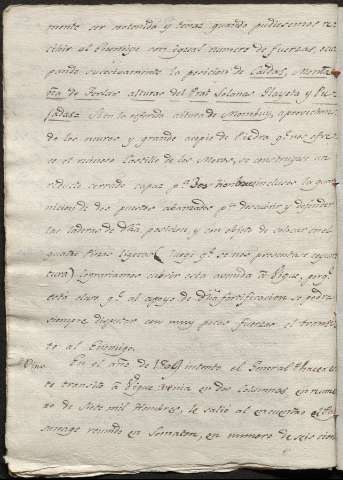 mente ser sostenida y tenaz quando pudiesemos re-
cibir al Enemigo con igual numero de fuerzas, ocu-
pando sucesivamente la posicion de Caldas, Monta-
ña de Forlos, alturas del Prat Solanas Playeta y Pu-
jadas. Si en la referida altura de Monbuy, aprovechan-
do los muros y grande acopio de Piedra qe. nos ofre-
ce el ruinoso Castillo de los Moros, se construyese un
reducto cerrado capaz pa. 300 hombres inclusos la guar-
nicion de dos puestos abanzados pa. descubrir y defender
las laderas de dha. posicion, y con objeto de colocar en el
quatro Piezas ligeras (luego qe. se nos presentase coyun-
tura) lograriamos cubrir esta avenida á Vique, porqe.
está claro qe. al apoyo de dha. fortificacion se podrá
siempre disputar con muy pocas fuerzas el transi-
to al Enemigo.
En el año de 1809 intentó el General frances es-
te transito á Vique, venia en dos Colunnas, en nume-
ro de Siete mil Hombres, le salió al encuentro el Pay-
sanage reunido en Somaten, en numero de seis cien